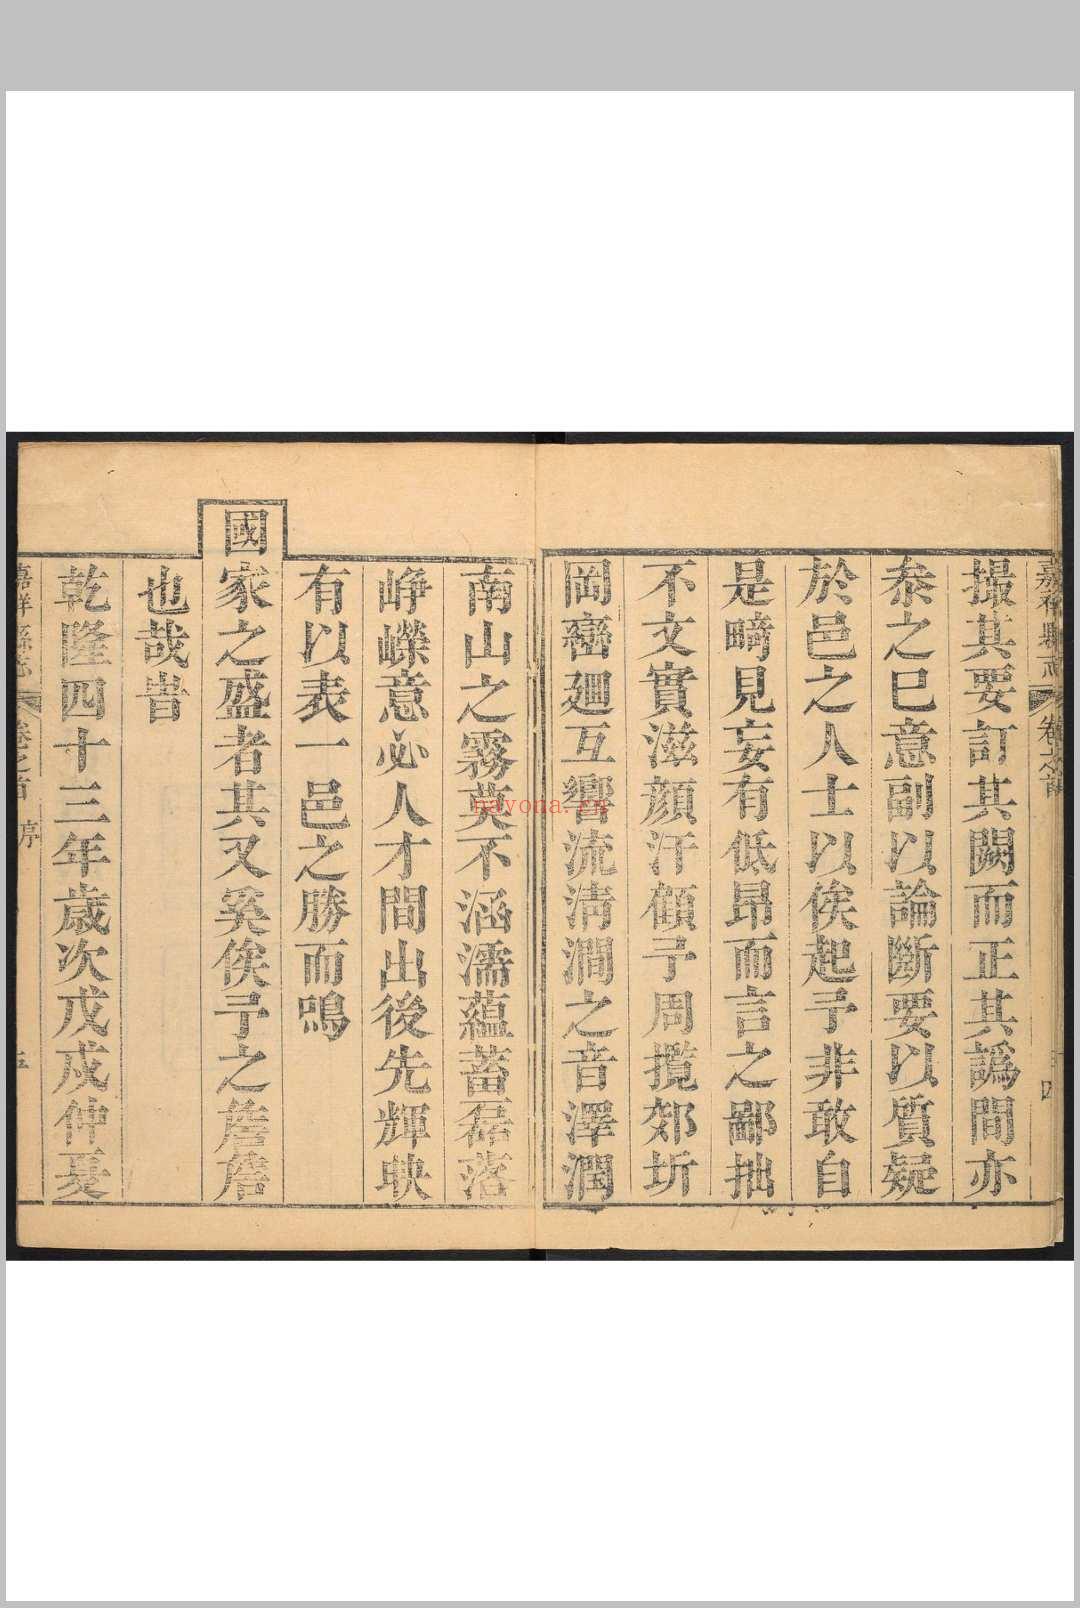 嘉祥縣志 卷之首 四
撮其要訂其闕而正其譌間亦
叅之已意副以論斷要以質疑
於邑之人士以俟起予非敢自
是疇見妄有低昂而言之鄙拙
不文實滋顔汗顧予周攬郊圻
岡巒廻互響流淸澗之音澤潤
南山之霧莫不涵濡蘊蓄磊落
崢嶸意必人才間出後先輝映
有以表一邑之勝而鳴
國家之盛者其又奚俟予之詹詹
也哉旹
乾隆四十三年歲次戊戌仲夏
嘉祥縣志 卷之首 序 五
nayona.cn